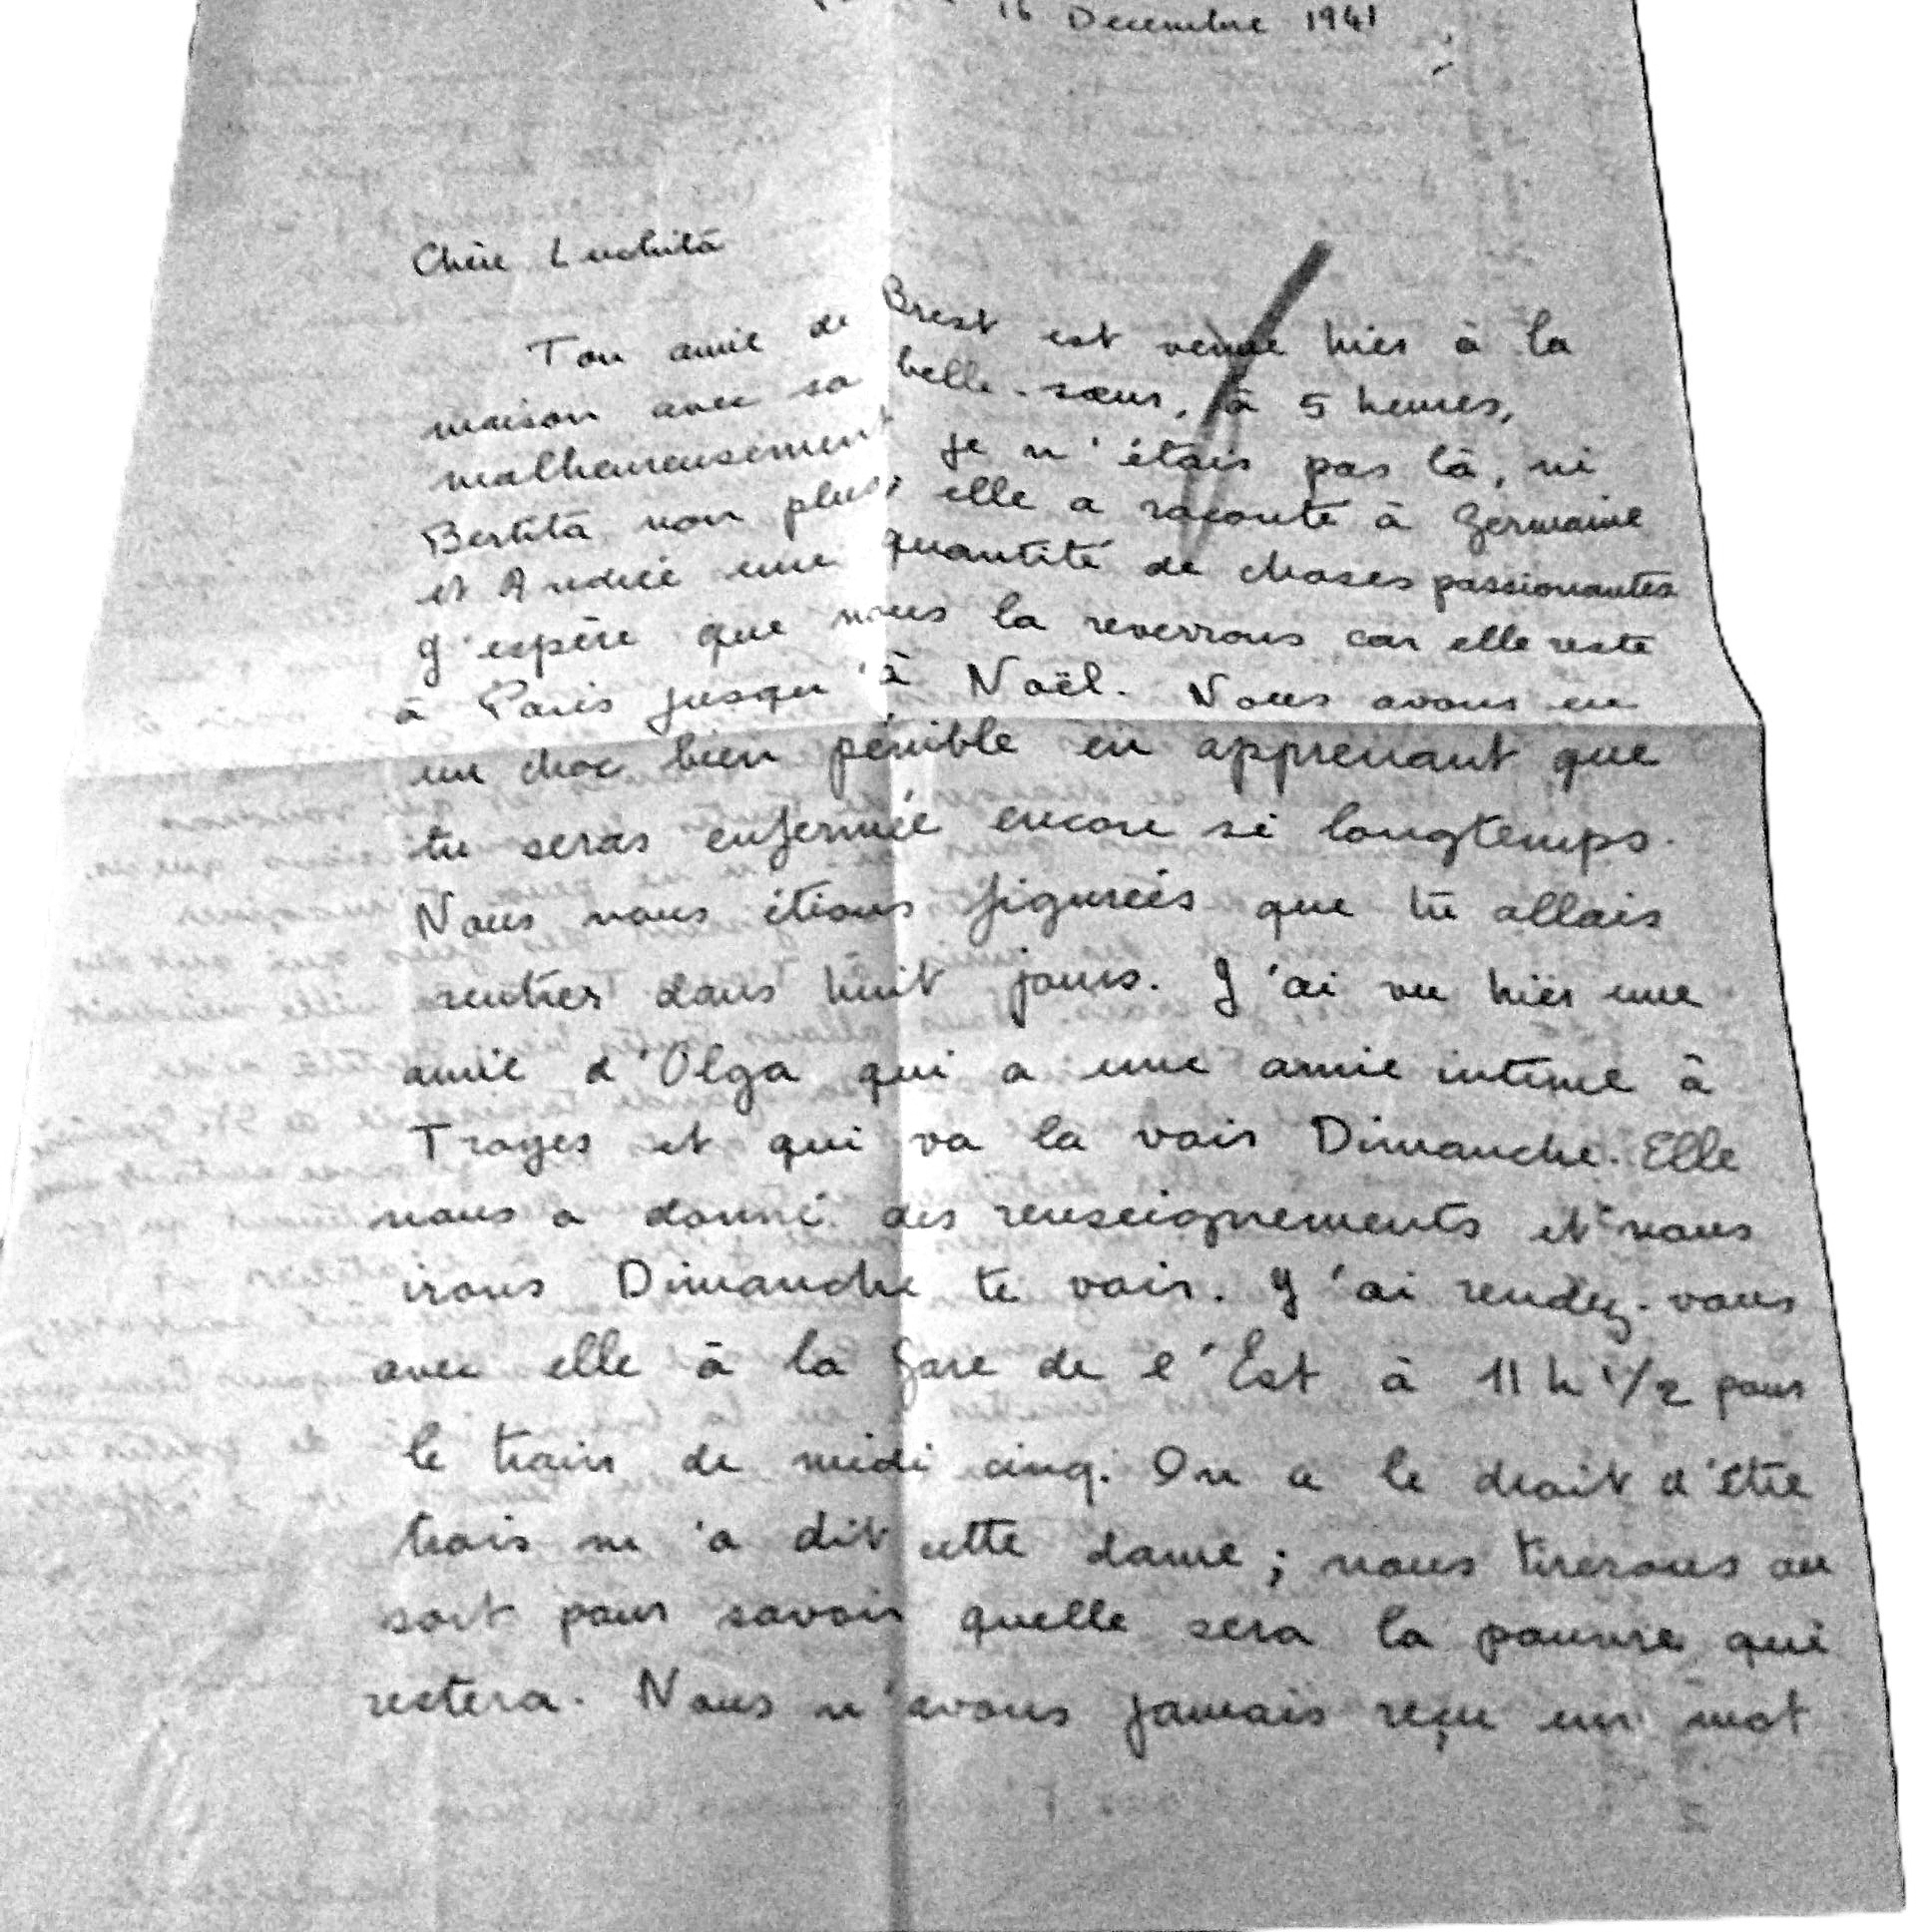 16 Decembre 1941
Chère Luchita
Ton amie de Brest est venue hier à la
maison avec sa belle-sœur, à 5 heures,
malheureusement je n'étais pas là, ni
Bertita non plus, elle a raconté à Germaine
et Andrée une quantité de choses passionantes
J'espère que nous la reverrons car elle reste
à Paris jusqu'à Noël. Nous avons eu
un choc bien pénible en apprenant que
tu seras enfermée encore si longtemps.
Nous nous étions figurées que tu allais
rentrer dans huit jours. J'ai vu hier une
amie d'Olga qui a une amie intime à
Troyes et qui va la voir Dimanche. Elle
nous a donné des renseignements et nous
irons Dimanche te voir. J'ai rendez-vous
avec elle à la gare de l'Est à 11 h 1/2 pour
le train de midi cinq. On a le droit d'être
trois m'a dit cette dame ; nous tirerons au
sort pour savoir quelle sera la pauvre qui
restera. Nous n'avons jamais reçu un mot